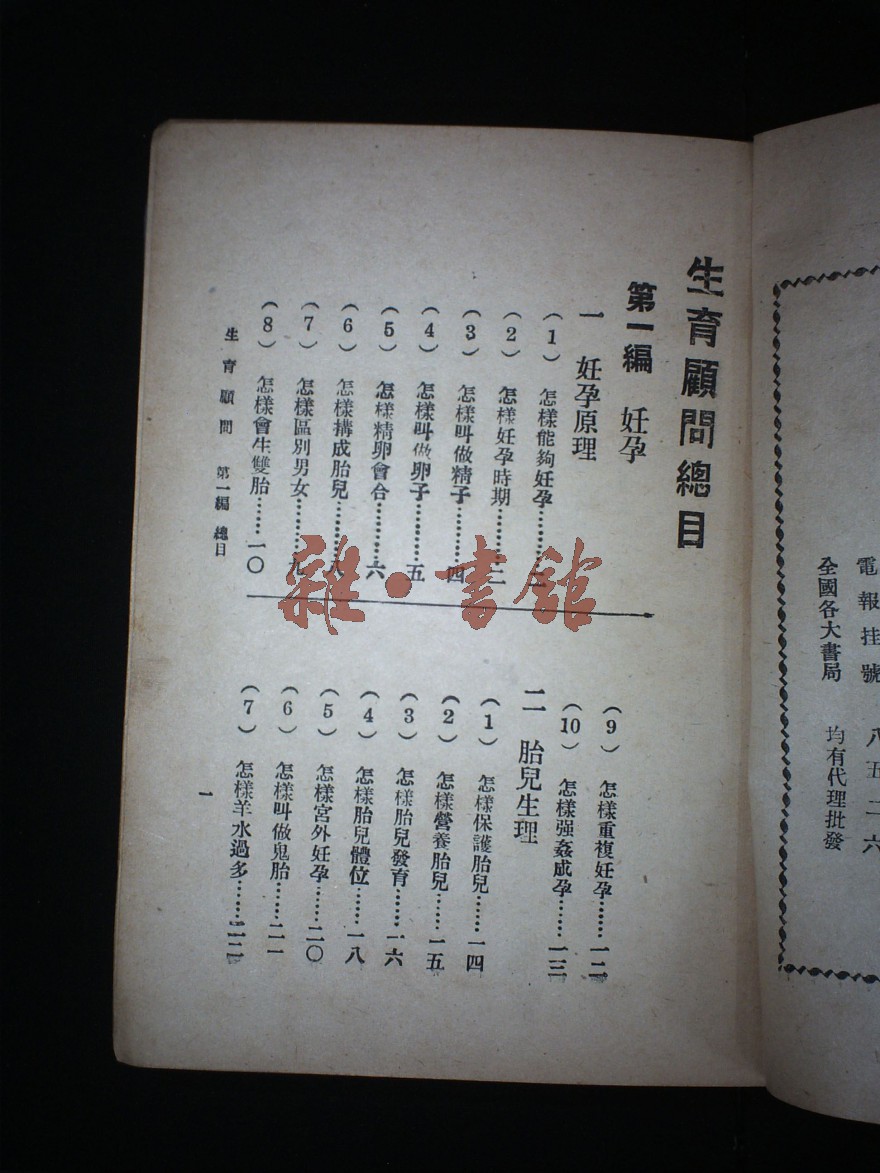 電報挂號 八五二六
全國各大書局 均有代理批發
生育顧問總目
第一編 妊孕
一 妊孕原理
(1) 怎樣能夠妊孕…………
(2) 怎樣妊孕時期………二
(3) 怎樣叫做精子………四
(4) 怎樣叫做卵子………五
(5) 怎樣精卵會合………六
(6) 怎樣搆成胎兒………八
(7) 怎樣區別男女………九
(8) 怎樣會生雙胎………一〇
(9) 怎樣重複妊孕………一二
(10) 怎樣强姦成孕………一三
二 胎兒生理
(1) 怎樣保護胎兒………一四
(2) 怎樣營養胎兒………一五
(3) 怎樣胎兒發育………一六
(4) 怎樣胎兒體位………一八
(5) 怎樣宮外妊孕………二〇
(6) 怎樣叫做鬼胎………二一
(7) 怎樣羊水過多………二二
生育顧問 第一編 總目
一
雜·書館